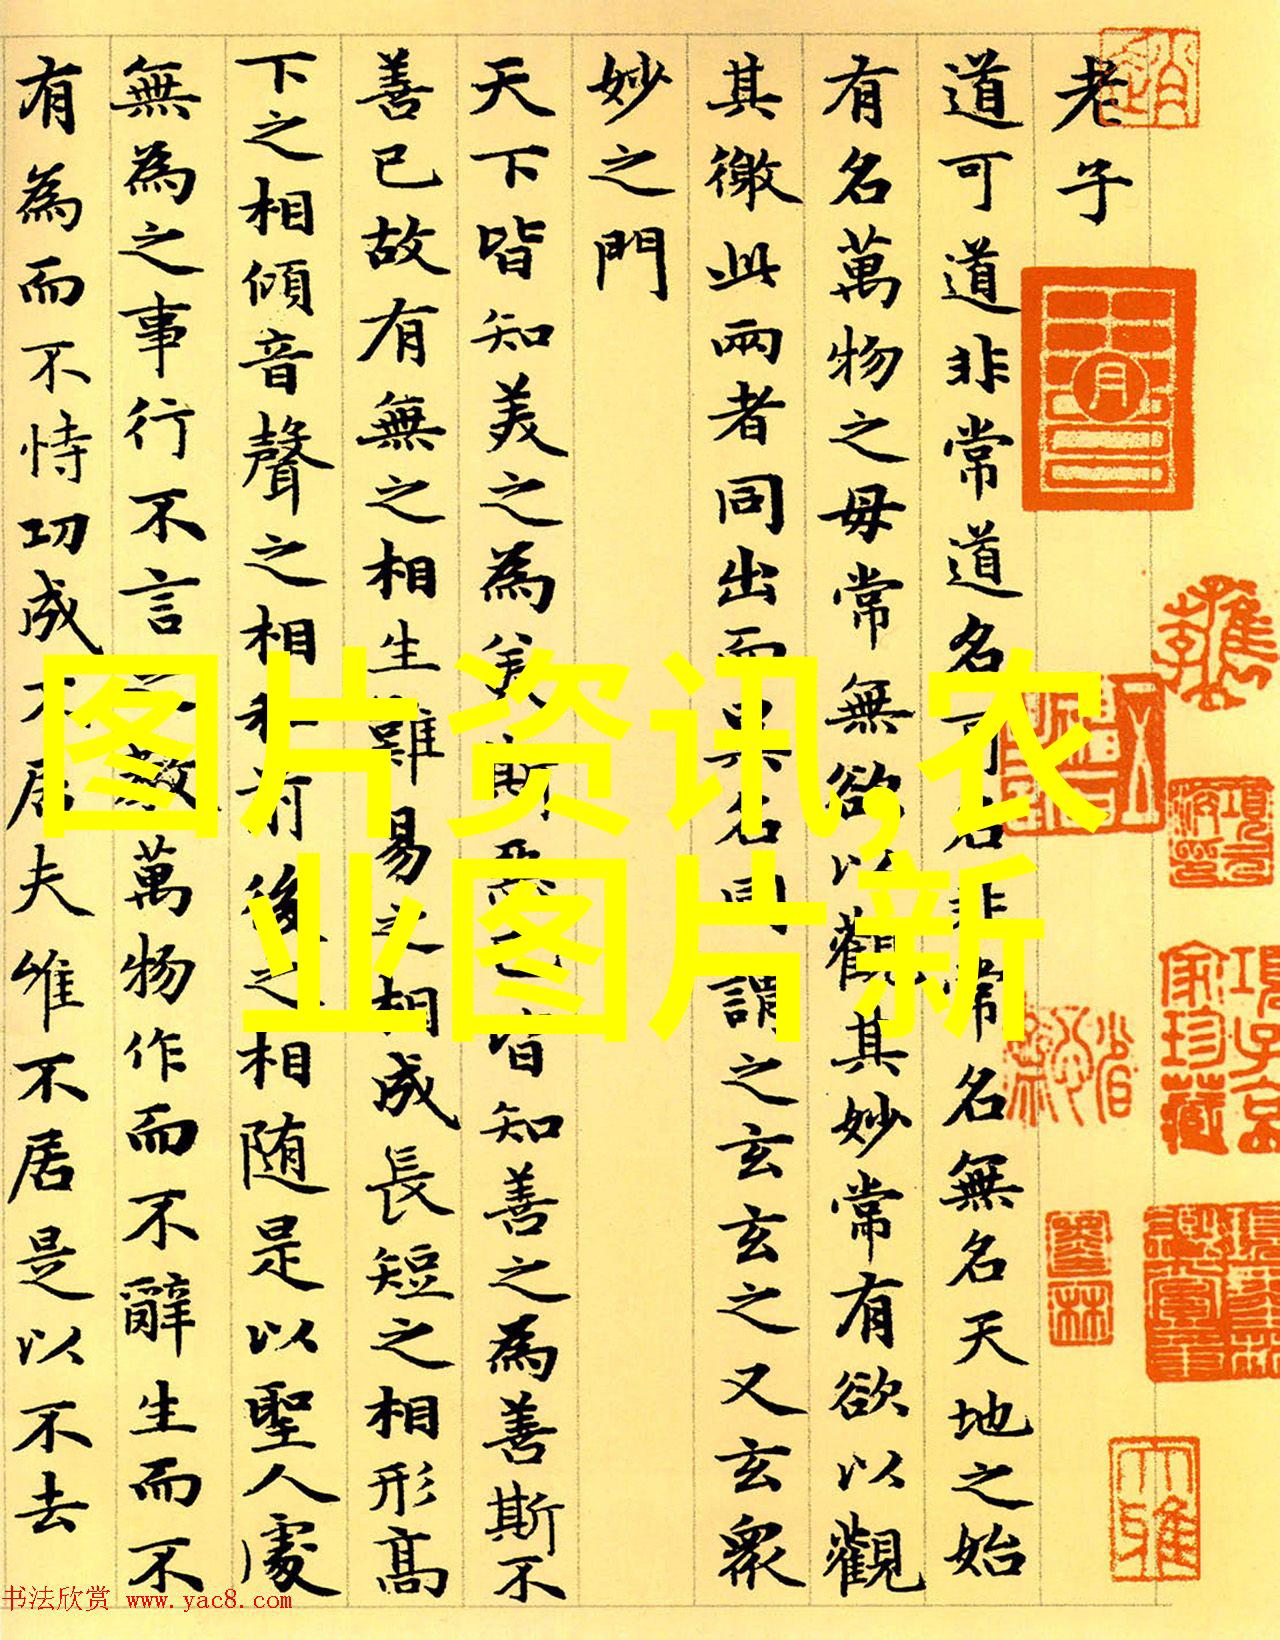 老子
道可道非常道名可名非常名無名天地之始
有名萬物之母常無欲以觀其妙常有欲以觀
其徼此兩者同出而異名同謂之玄玄之又玄衆
妙之門
天下皆知美之為美斯惡已皆知善之為善斯不
善已故有無之相生難易之相成長短之相形高
下之相傾音聲之相和前後之相随是以聖人處
無為之事行不言之教萬物作而不辭生而不
有為而不恃功成不居夫唯不居是以不去
图片资讯,农
业图片新
項子京
家珍藏
书法欣赏 www.yac8.com